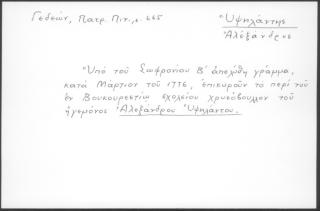 Γεδεών, Πατρ. Πιν., σ. 665
Ὑψηλάντης
Ἀλέξανδρος
"Ὑπὸ τοῦ Σωφρονίου Β' ἀπελύθη γράμμα,
κατὰ Μάρτιον τοῦ 1776, ἐπικυροῦν τὸ περὶ τοῦ
ἐν Βουκουρεστίῳ σχολείου χρυσόβουλλον τοῦ
ἡγεμόνος Ἀλεξάνδρου Ὑψηλάντου.